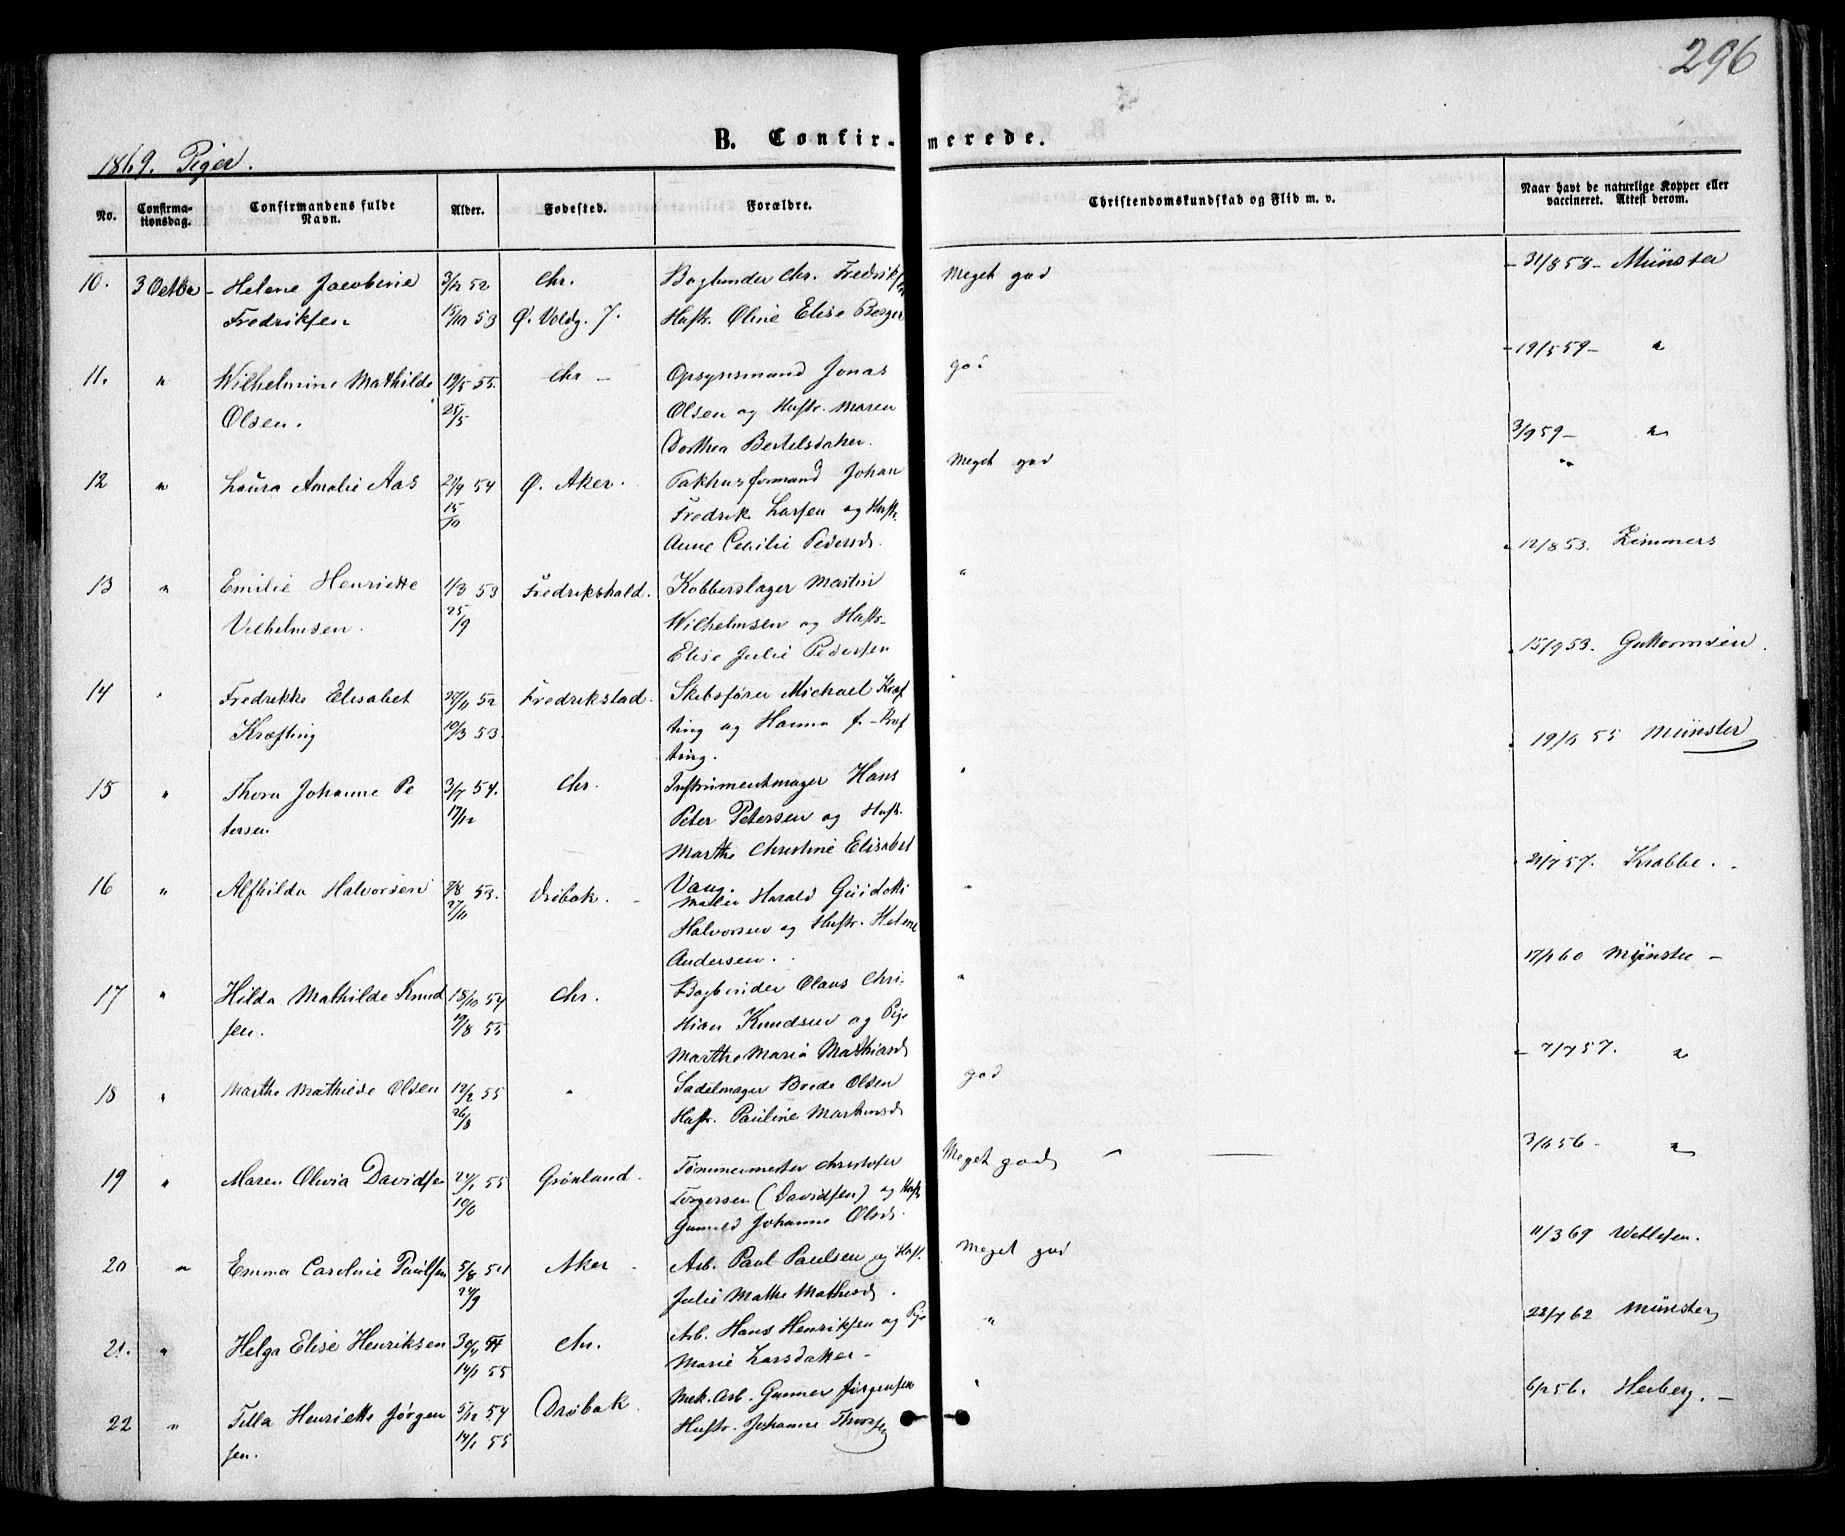 296
B. Confirmerede.
1869. Piger.
No. Confirmationsdag. Confirmandens fulde Navn. Alder. Fødested. Forældre. Christendomskundskab og Flid m. v. Naar havt de naturlige Kopper eller vaccineret. Attest derom.
10. 3 Octbr Helene Jacobine 3/12 52 Chr. Bogbinder Chr. Fredriksen Meget god 31/8 58 Münster
Fredriksen 15/10 53 Ø. Voldg. 7. Hustr. Oline Elise Berger
11. " Wilhelmine Mathilde 19/5 55. Chr Opsynsmand Jonas god 19/5 59 "
Olsen. 25/5 Olsen og Hustr. Maren
Dorthea Bertelsdatter.
12 " Laura Amalie Aas 21/9 54 Ø. Aker. Pakhusformand Johan Meget god 3/9 59 "
15/10 Fredrik Larsen og Hustr.
Anne Cecilie Pedersd.
13 " Emilie Henriette 1/3 53 Fredrikshald. Kobberslager Martin " 12/8 53. Zimmers
Vilhelmsen. 25/9 Wilhelmsen og Hustr.
Elise Julie Pedersen
14 " Fredrikke Elisabet 27/11 52 Fredrikstad Skibsfører Michael Kref " 15/9 53. Guttormsen.
Krefting 10/3 53. ting og Hanna f. Kref
ting.
15 " Thora Johanne Pe 3/7 54. Chr. Instrumentmager Hans " 19/6 55 Münster
tersen 17/12 Peter Petersen og Hustr.
Marthe Christine Elisabet
Vang.
16 " Alfhilda Halvorsen 7/8 53. Drøbak. Maler Harald Guidotti " 21/7 57. Krabbe.
27/11 Halvorsen og Hustr. Helene
Andersen.
17 " Hilda Mathilde Knud 18/10 54 Chr. Bogbinder Olaus Chri- " 17/1 60 Münster
sen. 19/8 55 stian Knudsen og Pige
Marthe Maria Mathiasd
18 " Marthe Mathilde Olsen 12/2 55 " Sadelmager Brede Olsen god 7/7 57. "
26/8 Hustr. Pauline Martinsd
19 " Maren Olivia Davidsen 24/1 55 Grønland. Tømmermester Christofer Meget god 3/6 56 "
10/6 Torgersen (Davidsen) og Hustr.
Gunild Johanne Olsd.
20 " Emma Caroline Paulsen 5/8 54 Aker Arb. Paul Paulsen og Hust. Meget god 11/3 69 Wetlesen.
24/9 Julie Mathe Mathisd.
21. " Helga Elise Henriksen 30/11 54 Chr. Arb. Hans Henriksen og Pige " 22/7 62 Münster
14/1 55 Marie Larsdatter
22 " Tilla Henriette Jørgen 5/12 54 Drøbak Mek. Arb. Gunner Jørgensen " 6/2 56. Heiberg.
sen. 14/1 55 Hustr. Johanne